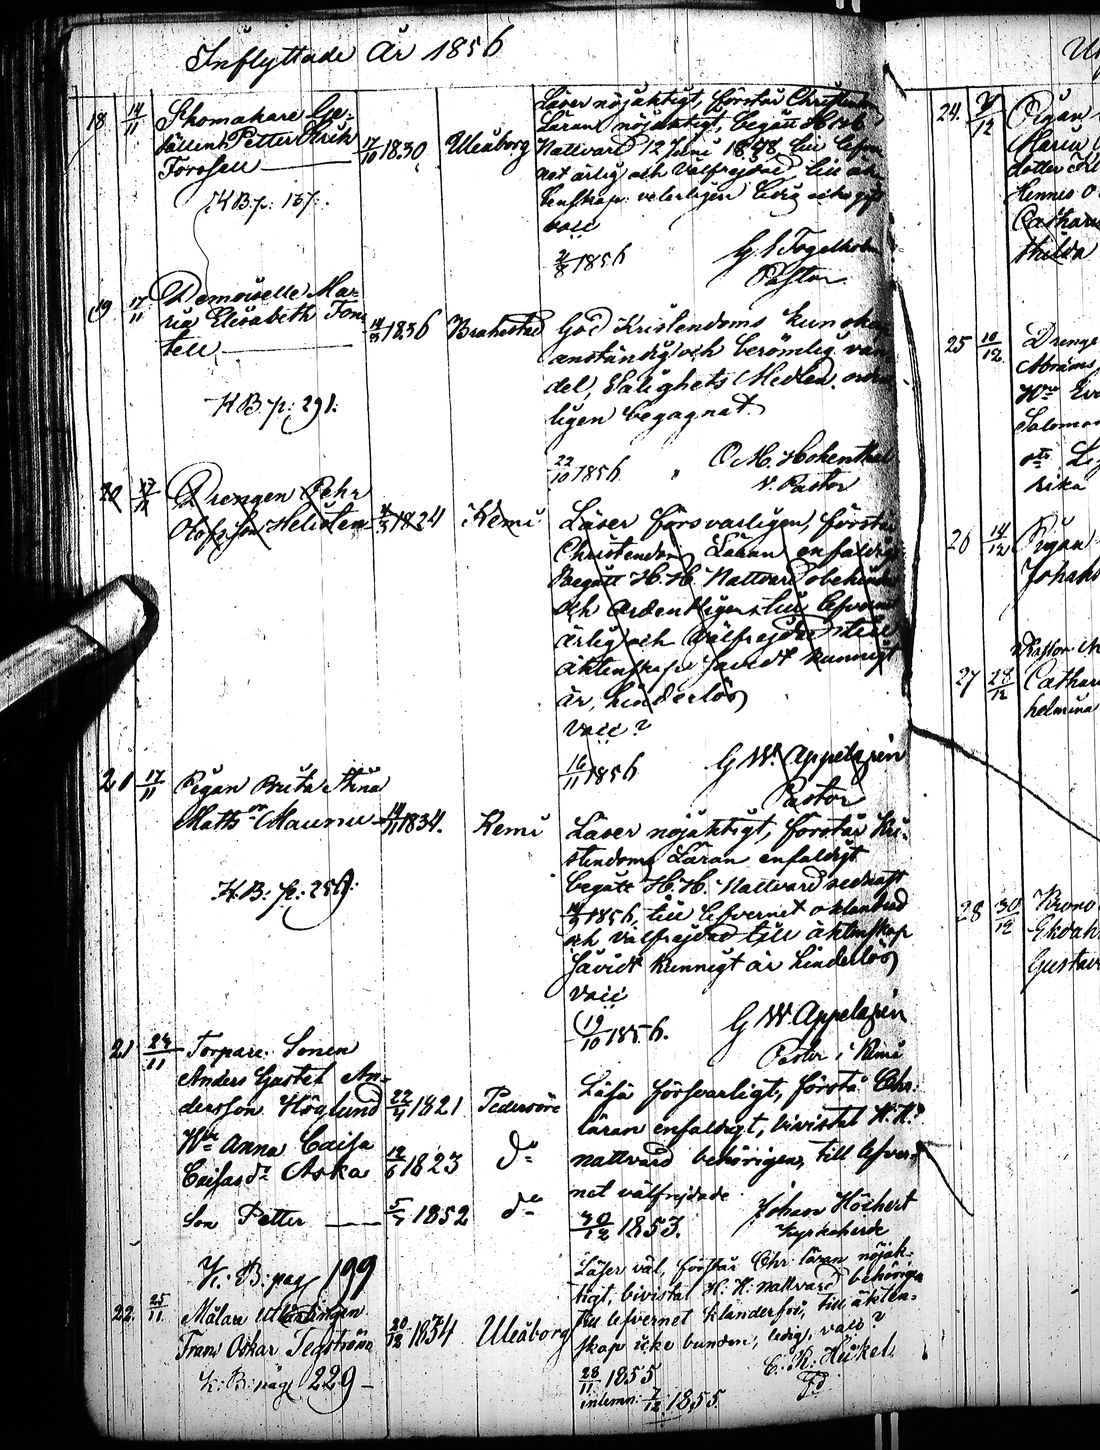 Inflyttade År 1856
18 14/11 Skomakare Ge-
sällen Petter Ulrik
Forssell 17/10 1830 Uleåborg
K.B. p: 157.
Läser nöjaktigt, förstår Christendoms
Läran nöjaktigt, begått H. H.
Nattvard 12 Juni 1848, till lefver-
net ärlig och välfrejdad, till äk-
tenskap veterligen ledig och
vacc
2/8 1856 G. Fogelholm
Pastor
19 17/11 Demoiselle Ma-
ria Elisabeth Fon-
tell 1836 Brahestad
K.B. p: 291.
God Kristendoms kunskap
anständig och berömlig van-
del, Salighets Medlen
ligen begagnat.
22/10 1856 C M. Hohenthal
V. Pastor
20 Drengen Pehr
Olofsson Helisten 1824 Kemi
Läser försvarligen, förstår
Christendoms Läran enfaldigt
Begått H. H. Nattvard obehindrad
och ordentligen, till lefvernet
ärlig och välfrejdad, till
äktenskap såvidt kunnigt
är, hinderlös
vacc?
16/11 1856 G W. Appelgren
Pastor
21 17/11 Pigan Brita Stina
Matts dr Maunu 1834. Kemi
K.B: p: 259:
Läser nöjaktigt, förstår Kri-
stendoms Läran enfaldigt
begått H. H. Nattvard sednast
1856, till lefvernet oklandrad
och välfrejdad till äktenskap
såvidt kunnigt är hinderlös
vacc
19/10 1856. G W Appelgren
Pastor i Kemi
21 24/11 Torpare Sonen
Anders Gustaf An-
dersson Höglund 22/4 1821 Pedersöre
Hu Anna Caisa
Caisas dr Aska 1823 do
Son Petter 1852 do
K: B: pag 199
Läsa försvarligt, förstå Chr:
läran enfaldigt, bivistat H. H.
nattvard behörigen, till lefver-
net välfrejdade
30/12 1853. Johan Höckert
Kyrkoherde
22. 25/11 Målare
Frans Oskar Segström 20/12 1834 Uleåborg
K: B: pag 229
Läser väl, förstår Chr. läran nöjak-
tigt, bivistat H. H. nattvard behörigen
till lefvernet klanderfri, till äkten-
skap icke bunden, ledig, vacc?
28/11 1855 C. R. Heikel
inlemn: 7/12 1855
24. 12 Pigan
Maria
dotter
Hennes
Catharina
Hilda
25 10/12 Drenge
Abrams
Hu Eva
Salomons
rika
26 14/12 Pigan
Johans
27 28/12 Catharina
helmina
28 30/12 Krono
Ekdahl
Gustav